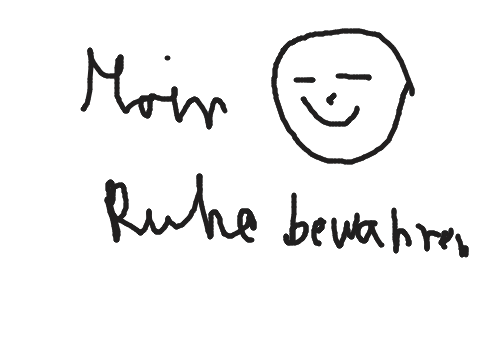 Moin
Ruhe bewahren